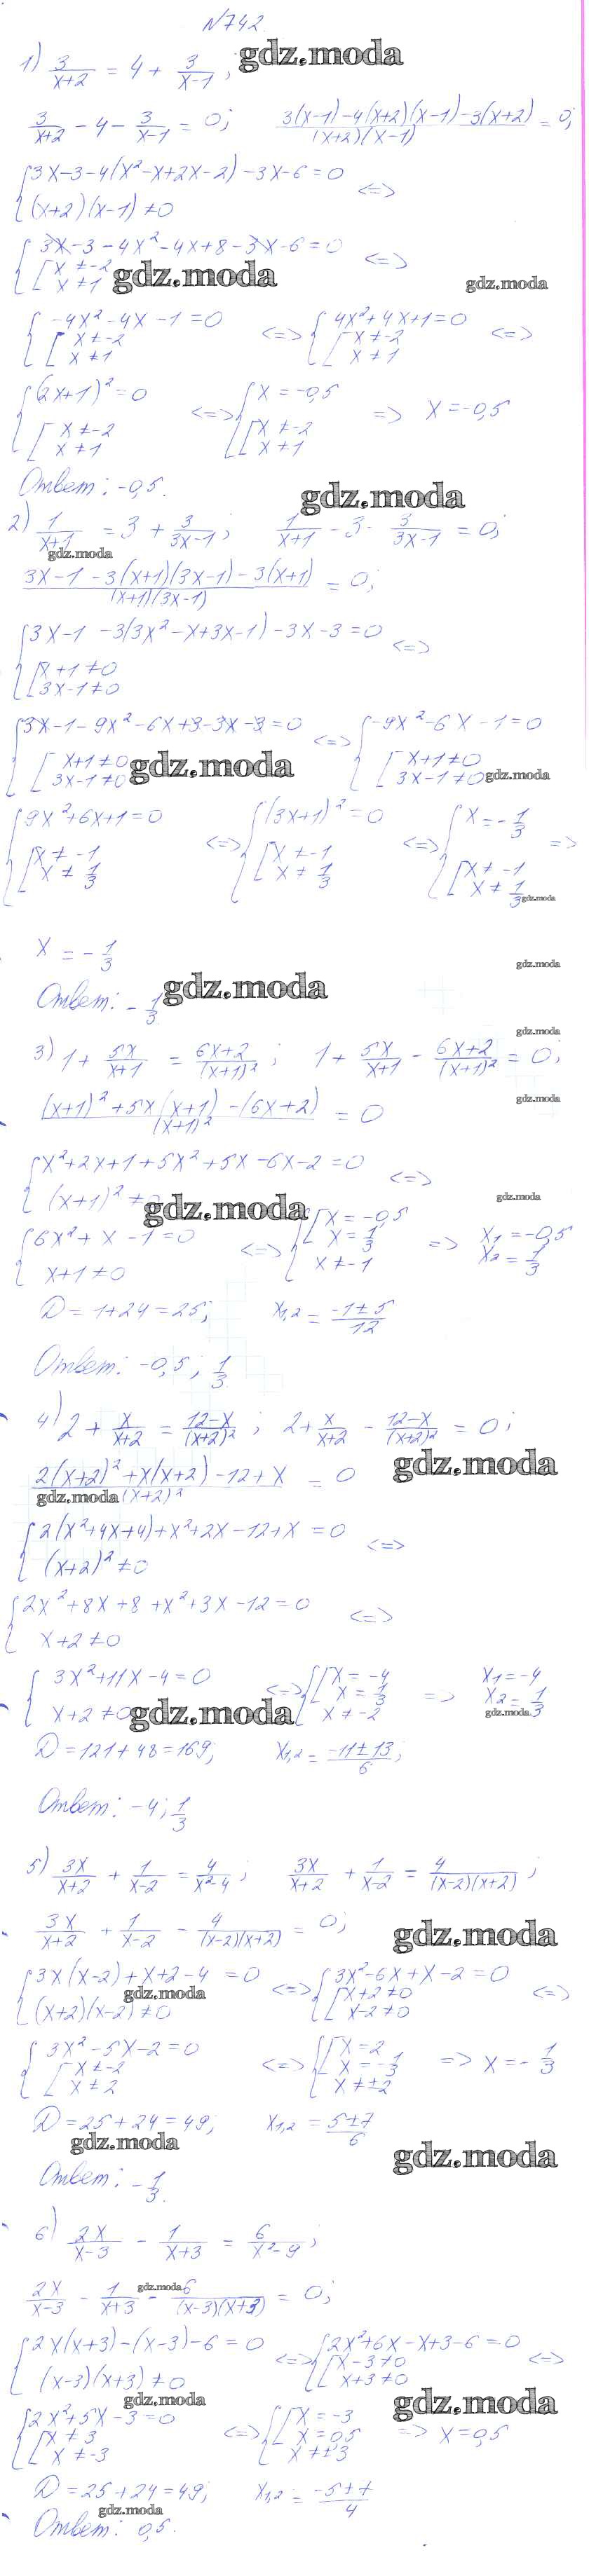 N742.
1) 3/(x+2) = 4 + 3/(x-1) ; gdz.moda
3/(x+2) - 4 - 3/(x-1) = 0; (3(x-1)-4(x+2)(x-1)-3(x+2))/((x+2)(x-1)) = 0;
{ 3x-3-4(x²-x+2x-2)-3x-6=0 <=>
(x+2)(x-1)≠0
{ 3x-3-4x²-4x+8-3x-6=0 <=>
[ x≠-2 gdz.moda gdz.moda
x≠1
{ -4x²-4x-1=0 <=> { 4x²+4x+1=0 <=>
[ x≠-2 [ x≠-2
x≠1 x≠1
{ (2x+1)²=0 <=> { x=-0,5 => x=-0,5
[ x≠-2 [ x≠-2
x≠1 x≠1
Ответ: -0,5. gdz.moda
2) 1/(x+1) = 3 + 3/(3x-1) ; 1/(x+1) - 3 - 3/(3x-1) = 0;
gdz.moda
(3x-1-3(x+1)(3x-1)-3(x+1))/((x+1)(3x-1)) = 0;
{ 3x-1-3(3x²-x+3x-1)-3x-3=0 <=>
[ x+1≠0
3x-1≠0
{ 3x-1-9x²-6x+3-3x-3=0 <=> { -9x²-6x-1=0
[ x+1≠0 [ x+1≠0
3x-1≠0 gdz.moda 3x-1≠0 gdz.moda
{ 9x²+6x+1=0 <=> { (3x+1)²=0 <=> { x=-1/3 =>
[ x≠-1 [ x≠-1 [ x≠-1
x≠1/3 x≠1/3 x≠1/3 gdz.moda
x = -1/3 gdz.moda
Ответ: -1/3 gdz.moda
gdz.moda
3) 1 + 5x/(x+1) = (6x+2)/(x+1)² ; 1 + 5x/(x+1) - (6x+2)/(x+1)² = 0;
((x+1)²+5x(x+1)-(6x+2))/(x+1)² = 0 gdz.moda
{ x²+2x+1+5x²+5x-6x-2=0 <=>
(x+1)²≠ gdz.moda gdz.moda
{ 6x²+x-1=0 <=> { [ x=-0,5 => x₁=-0,5
x=1/3 x₂=1/3
x+1≠0 x≠-1
D=1+24=25; x₁,₂ = (-1±5)/12
Ответ: -0,5; 1/3
4) 2 + x/(x+2) = (12-x)/(x+2)² ; 2 + x/(x+2) - (12-x)/(x+2)² = 0;
(2(x+2)²+x(x+2)-12+x)/(x+2)² = 0 gdz.moda
gdz.moda
{ 2(x²+4x+4)+x²+2x-12+x=0 <=>
(x+2)²≠0
{ 2x²+8x+8+x²+3x-12=0 <=>
x+2≠0
{ 3x²+11x-4=0 <=> { [ x=-4 => x₁=-4
x=1/3 x₂=1/3
x+2≠0 gdz.moda x≠-2 gdz.moda
D=121+48=169; x₁,₂ = (-11±13)/6;
Ответ: -4; 1/3
5) 3x/(x+2) + 1/(x-2) = 4/(x²-4) ; 3x/(x+2) + 1/(x-2) = 4/((x-2)(x+2)) ;
3x/(x+2) + 1/(x-2) - 4/((x-2)(x+2)) = 0; gdz.moda
{ 3x(x-2)+x+2-4=0 <=> { 3x²-6x+x-2=0 <=>
gdz.moda [ x+2≠0
(x+2)(x-2)≠0 x-2≠0
{ 3x²-5x-2=0 <=> { [ x=2 => x=-1/3
[ x≠-2 x=-1/3
x≠2 x≠±2
D=25+24=49; x₁,₂ = (5±7)/6
gdz.moda gdz.moda
Ответ: -1/3.
6) 2x/(x-3) - 1/(x+3) = 6/(x²-9) ;
2x/(x-3) - 1/(x+3) - 6/((x-3)(x+3)) = 0; gdz.moda
{ 2x(x+3)-(x-3)-6=0 <=> { 2x²+6x-x+3-6=0 <=>
[ x-3≠0
(x-3)(x+3)≠0 x+3≠0
gdz.moda gdz.moda
{ 2x²+5x-3=0 <=> { [ x=-3 => x=0,5
[ x≠3 x=0,5
x≠-3 x≠±3
D=25+24=49; x₁,₂ = (-5±7)/4
gdz.moda
Ответ: 0,5.